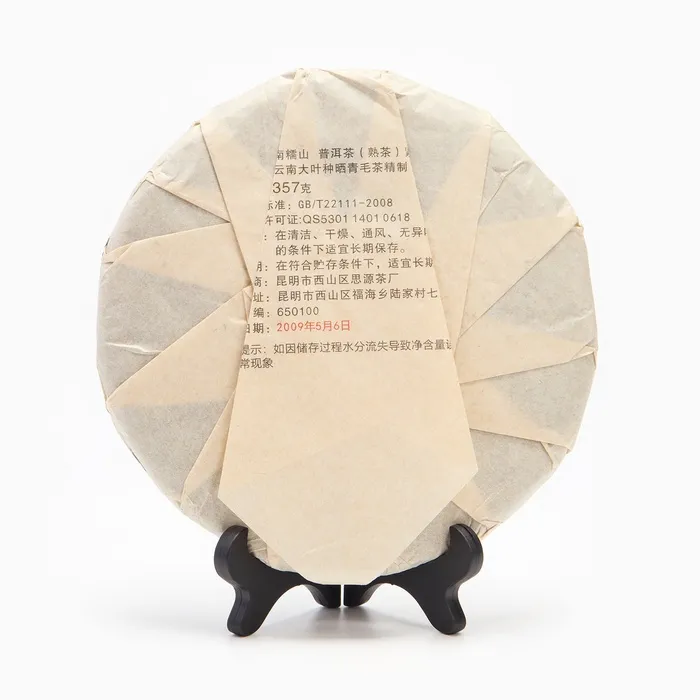 南糯山 普洱茶（熟茶）
云南大叶种晒青毛茶精制
357克
标准：GB/T22111-2008
许可证:QS5301 1401 0618
：在清洁、干燥、通风、无异
的条件下适宜长期保存。
：在符合贮存条件下，适宜长期
：昆明市西山区思源茶厂
址：昆明市西山区福海乡陆家村七
编：650100
日期：2009年5月6日
提示：如因储存过程水分流失导致净含量
常现象